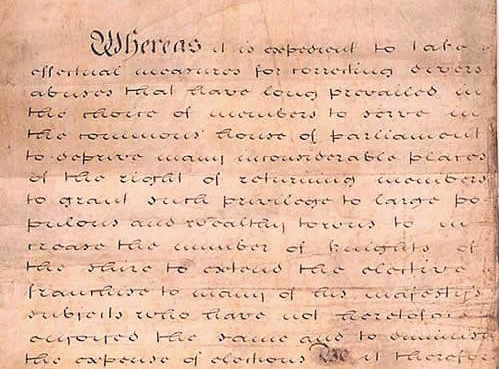 Whereas it is expedient to take
effectual measures for correcting divers
abuses that have long prevailed in
the choice of members to serve in
the commons house of parliament
to deprive many inconsiderable places
of the right of returning members
to grant such privilege to large po
pulous and wealthy towns to in
crease the number of knights of
the shire to extend the elective
franchise to many of his majestys
subjects who have not heretofore
enjoyed the same and to diminish
the expense of elections Be it therefor